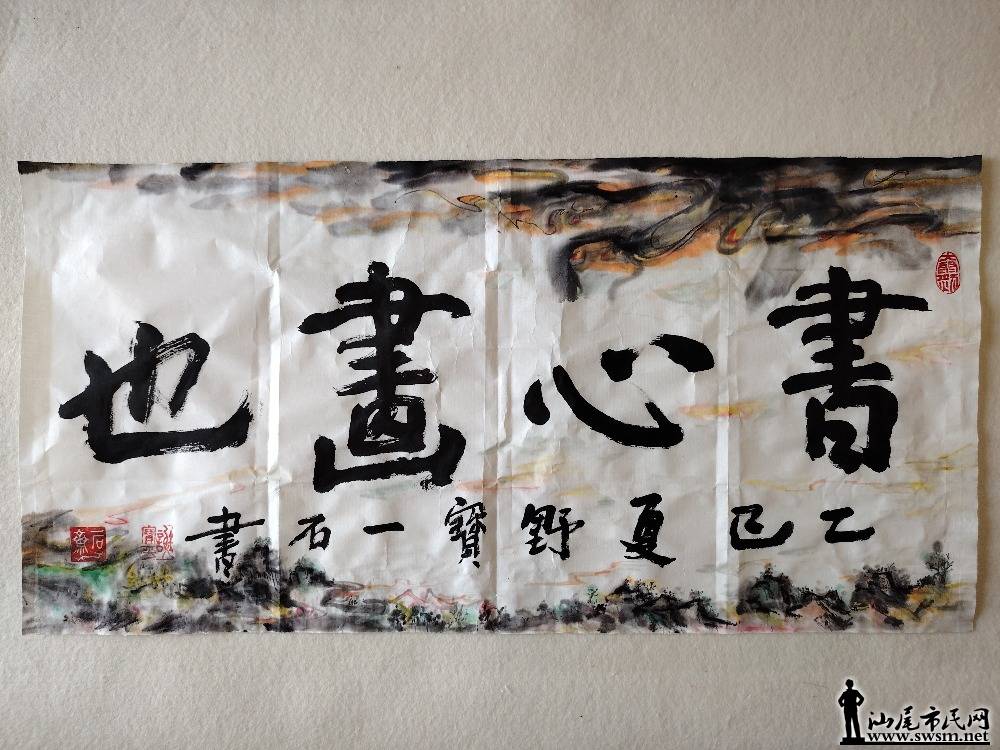 書心畫也
乙巳夏野寶一石書
汕尾市民网
www.swsm.net